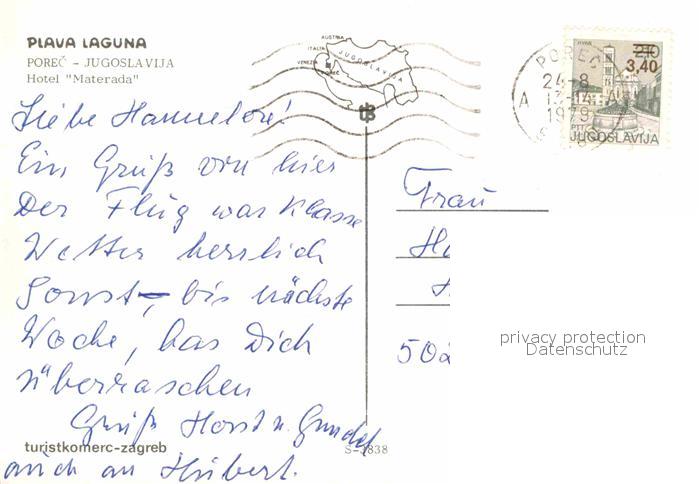 PLAVA LAGUNA
POREČ – JUGOSLAVIJA
Hotel "Materada"
Liebe Hannelore!
Ein Gruß von hier
Der Flug war Klasse
Wetter herrlich
Sonst, bis nächste
Woche, lass Dich
überraschen
Gruß Horst u. Gundel
auch an Hubert.
turistkomerc-zagreb
S-3838
AUSTRIA
ITALIA
VENEZIA
POREČ
JUGOSLAVIJA
POREČ
24-8
A 13-14
1979
210
3,40
PTT
JUGOSLAVIJA
Frau
502
privacy protection
Datenschutz